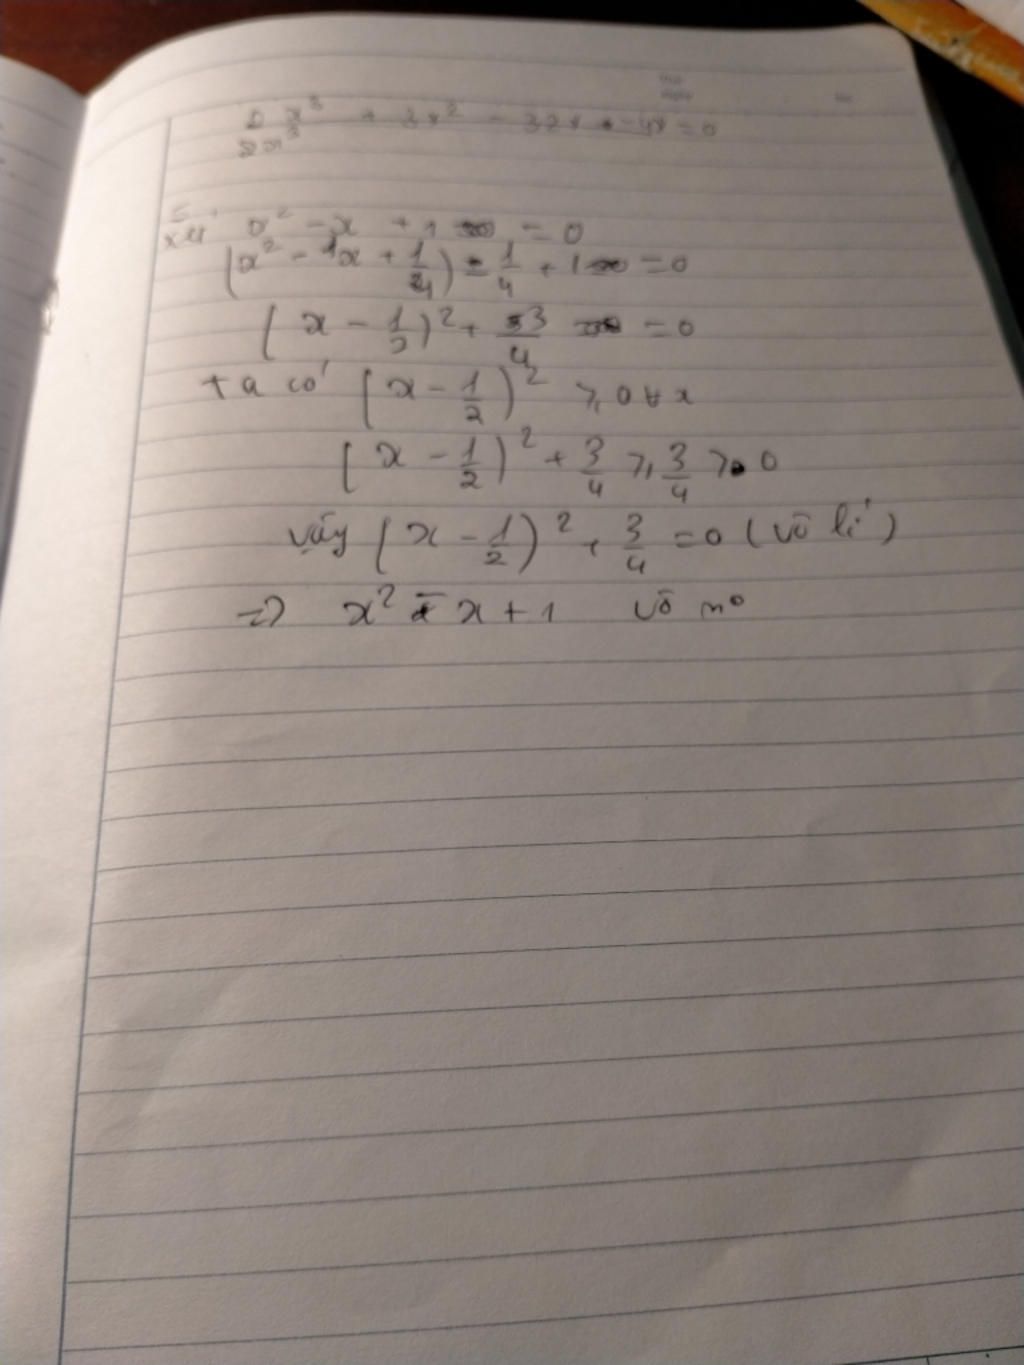 x³ + 3x² - 32x - 4x = 0
xét x² - x + 1 = 0
(x² - 1x + 1/4) - 1/4 + 1 = 0
(x - 1/2)² + 3/4 = 0
ta có (x - 1/2)² ⩾ 0 ∀ x
(x - 1/2)² + 3/4 ⩾ 3/4 > 0
vậy (x - 1/2)² + 3/4 = 0 (vô lí)
=> x² - x + 1 vô n⁰